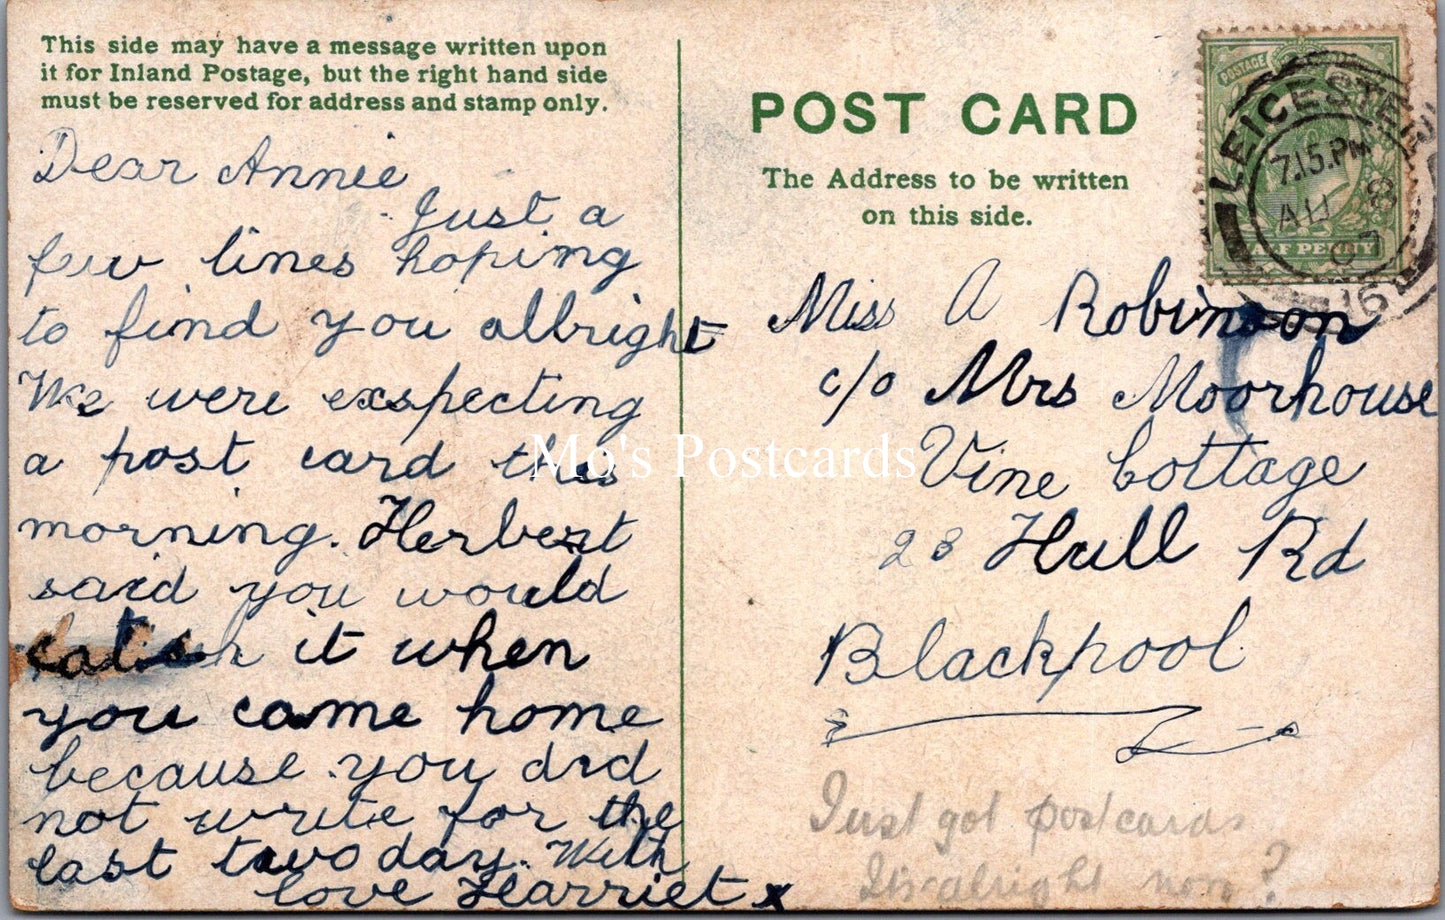 This side may have a message written upon
it for Inland Postage, but the right hand side
must be reserved for address and stamp only.
Dear Annie
Just a
few lines hoping
to find you allright
We were exspecting
a post card this
morning. Herbert
said you would
catch it when
you came home
because you did
not write for the
last two day. With
love Harriet x
POST CARD
The Address to be written
on this side.
POSTAGE
HALF PENNY
LEICESTER
7.15.PM
AU 8
07
16
Miss A Robinson
c/o Mrs Moorhouse
Vine Cottage
23 Hull Rd
Blackpool
Just got postcards
Its alright now?
Mo's Postcards